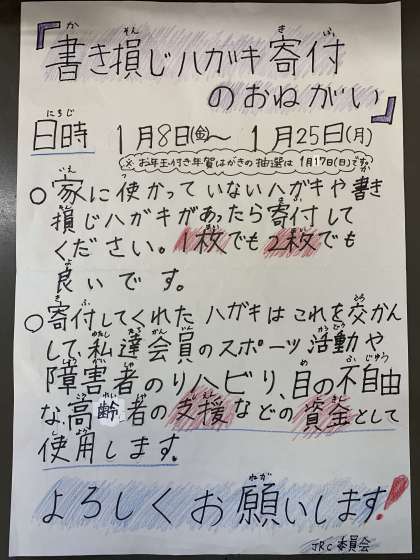 『書き損じハガキ寄付
のおねがい』
日時 1月8日(金)～ 1月25日(月)
※お年玉付き年賀はがきの抽選は1月17日(日)です。
○家に使かっていないハガキや書き
損じハガキがあったら寄付して
ください。1枚でも2枚でも
良いです。
○寄付してくれたハガキはこれを交かん
して、私達会員のスポーツ活動や
障害者のリハビリ、目の不自由
な高齢者の支援などの資金として
使用します。
よろしくお願いします!
JRC委員会